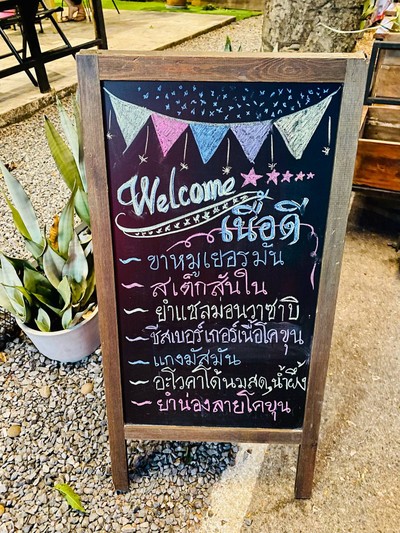 Welcome
เนื้อดี
~ ขาหมูเยอรมัน
~ สเต็กสันใน
~ ยำแซลม่อนวาซาบิ
~ ชีสเบอร์เกอร์เนื้อโคขุน
~ แกงมัสมัน
~ อะโวคาโด้นมสด,น้ำผึ้ง
~ ยำน่องลายโคขุน